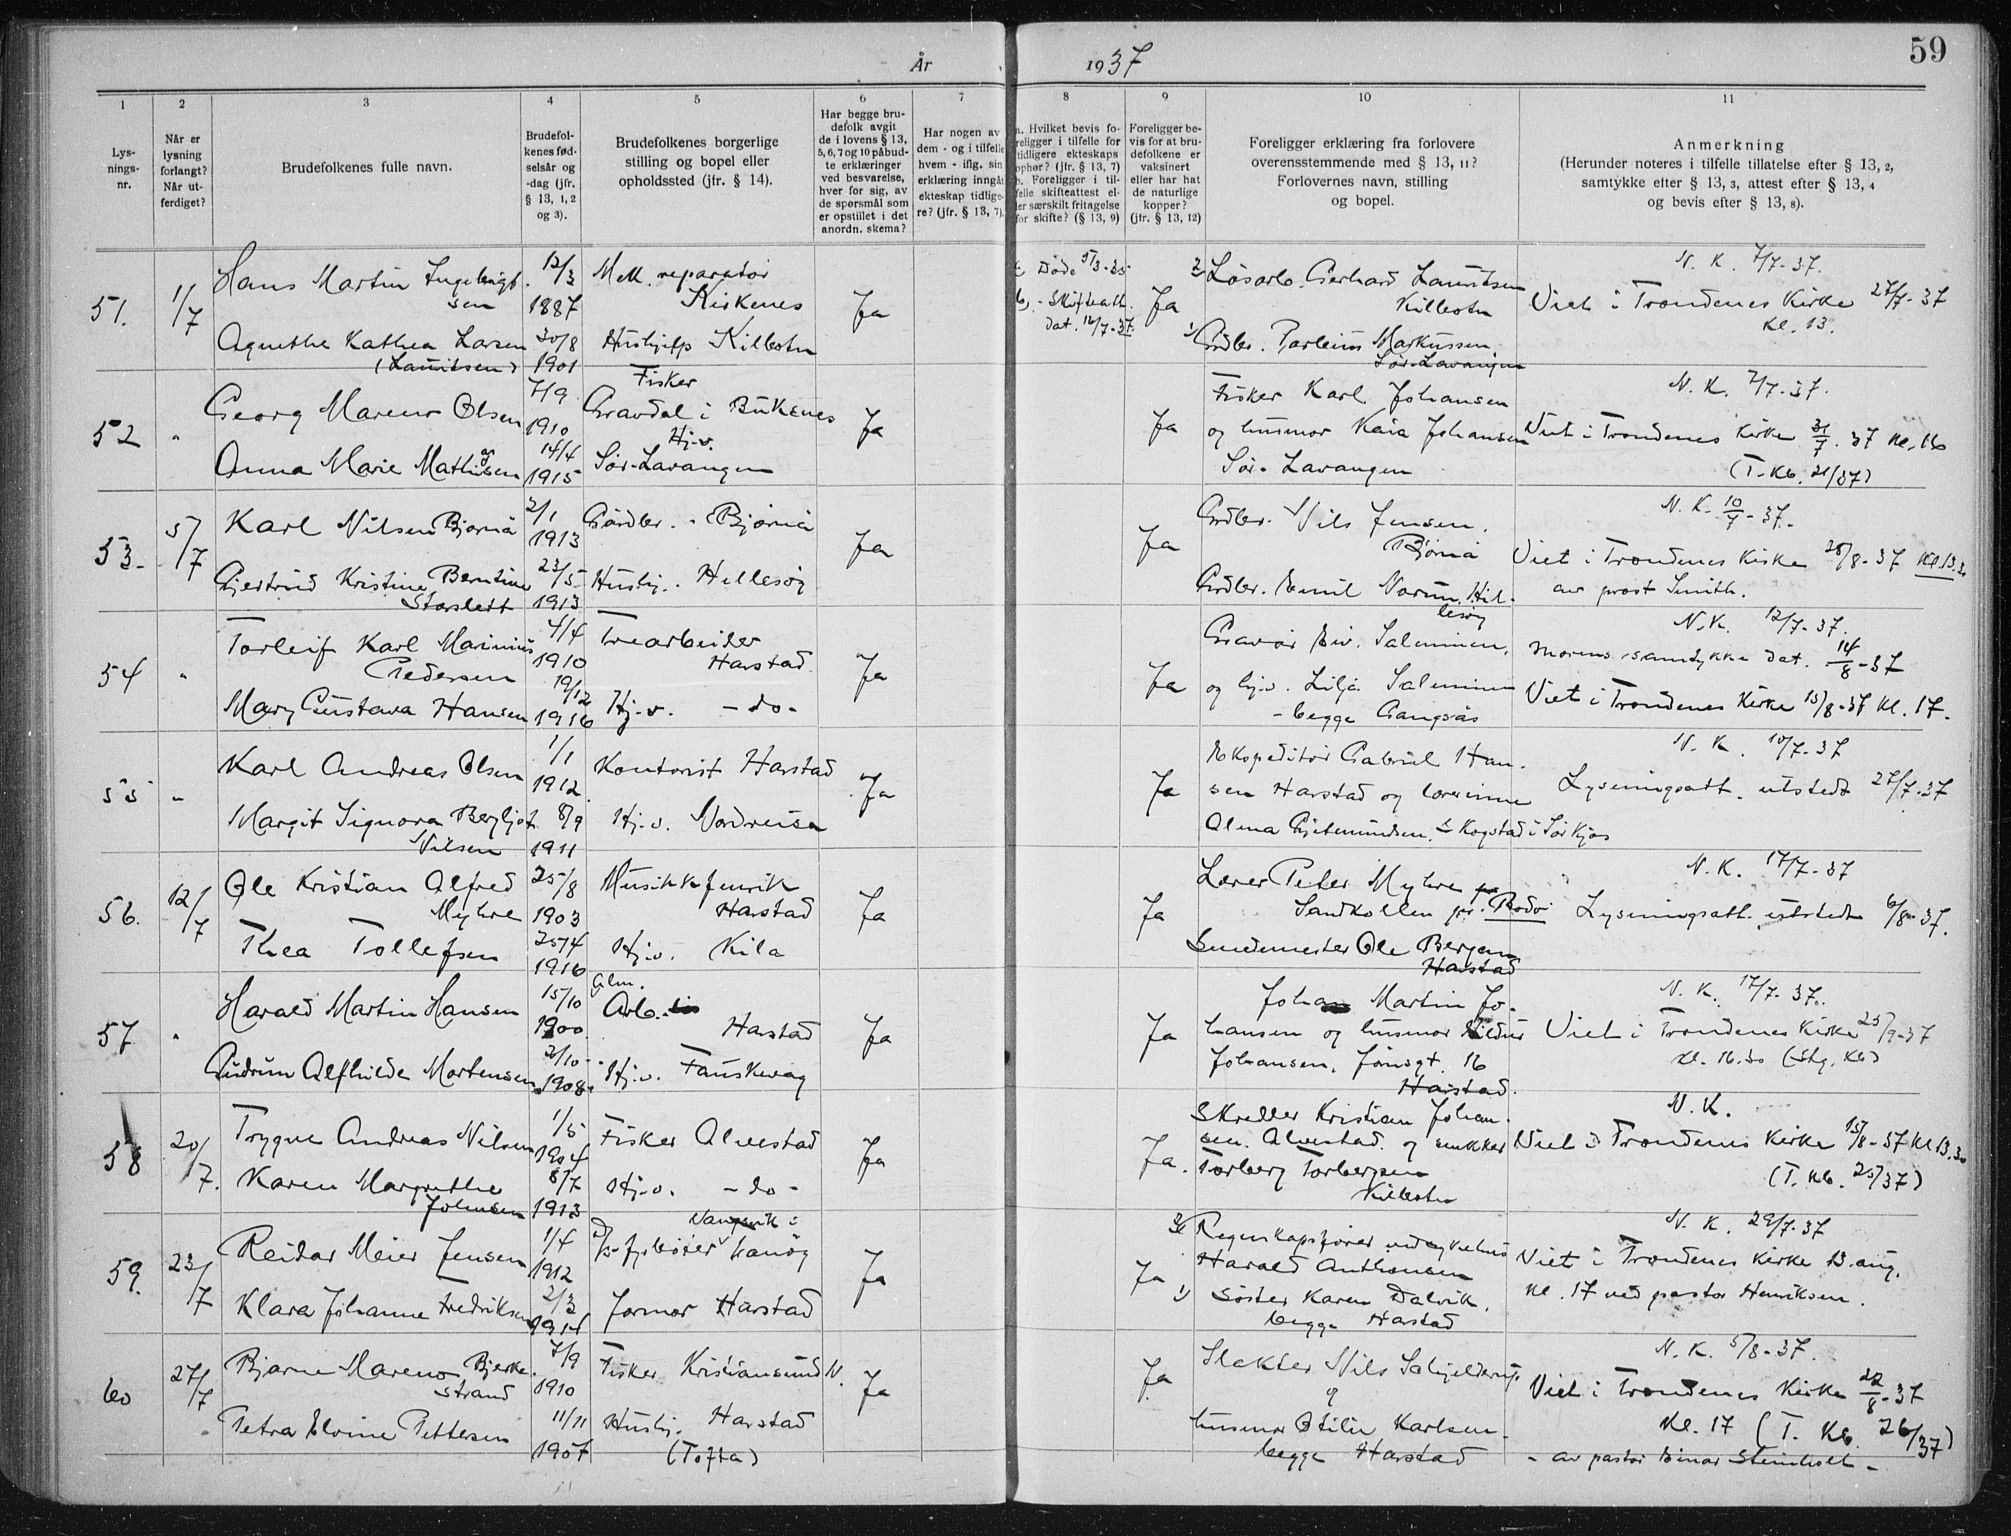 År 1937
59
1 2 3 4 5 6 7 8 9 10 11
Lys-
nings-
nr.
Når er
lysning
forlangt?
Når ut-
ferdiget?
Brudefolkenes fulle navn.
Brudefol-
kenes fød-
selsår og
-dag (jfr.
§ 13, 1, 2
og 3).
Brudefolkenes borgerlige
stilling og bopel eller
opholdssted (jfr. § 14).
Har begge bru-
defolk avgit
de i lovens § 13,
5, 6, 7 og 10 påbud-
te erklæringer
ved besvarelse,
hver for sig, av
de spørsmål som
er opstillet i det
anordn. skema?
Har nogen av
dem - og i tilfelle
hvem - iflg. sin
erklæring inngåt
ekteskap tidlige-
re? (jfr. § 13, 7).
a. Hvilket bevis fo-
religger i tilfelle for
tidligere ekteskaps
ophør? (jfr. § 13, 7)
b. Foreligger i til-
felle skifteattest el-
ler særskilt fritagelse
for skifte? (§ 13, 9)
Foreligger be-
vis for at bru-
defolkene er
vaksinert
eller har hat
de naturlige
kopper?
(jfr. § 13, 12)
Foreligger erklæring fra forlovere
overensstemmende med § 13, 11?
Forlovernes navn, stilling
og bopel.
Anmerkning
(Herunder noteres i tilfelle tillatelse efter § 13, 2,
samtykke efter § 13, 3, attest efter § 13, 4
og bevis efter § 13, 8).
51. 1/7
Hans Martin Ingebrigt-
sen
12/3
1887
Mek. reparatør
Kirkenes
Ja
Døde 5/3-35
b, - Skifteatt.
dat. 16/7-37.
Ja
2) Løsarb. Gerhard Lauritsen
Killbotn
N. K. 7/7-37.
Viet i Trondenes Kirke 27/7-37
Kl. 13.
Agnethe Kathea Larsen
(Lauritsen)
30/8
1901
Hushjelp Killbotn
1) Grdbr. Parleius Markussen
Sør-Lavangen
52 "
Georg Mareno Olsen
7/9
1910
Fisker
Gravdal i Buksnes
Ja
Ja
Fisker Karl Johansen
og husmor Kaia Johansen
Sør-Lavangen
N. K. 7/7-37.
Viet i Trondenes Kirke 31/7. 37 Kl. 16
(T. Kb. 21/37)
Anna Marie Mathisen
14/4
1915
Hj.v.
Sør-Lavangen
53. 5/7
Karl Nilsen Bjørnå
2/1
1913
Gårdbr. - Bjørnå
Ja
Ja
Grdbr. Nils Jensen.
Bjørnå
N. K. 10/7-37.
Viet i Trondenes Kirke 28/8-37 Kl. 13.30
av prost Smith.
Gjertrud Kristine Berntine
Storslett
23/5
1913
Hushj. Hillesøy
Grdbr. Emil Norum, Hil-
lesøy
54 "
Torleif Karl Marinius
Pedersen
4/4
1910
Trearbeider
Harstad
Ja
Ja
Gravør Eiv. Salminen,
og hj.v. Lilja Salminen
- begge Gangsås
N.K. 12/7-37.
Morens samtykke dat. 14/8-37
Viet i Trondenes Kirke 15/8-37 Kl. 17.
Mary Gustava Hansen
19/12
1916
Hj.v. - do -
55 "
Karl Andreas Olsen
1/1
1912
Kontorist Harstad
Ja
Ja
Ekspeditør Gabriel Han-
sen Harstad og lærerinne
Alma Gjetmundsen, Kogstad i Sørkjos
N. K. 10/7-37
Lysningsatt. utstedt 27/7-37
Margit Signora Bergljot
Nilsen
8/9
1911
Hj.v. Nordreisa
56. 12/7
Ole Kristian Alfred
Myhre
25/8
1903
Musikkfenrik
Harstad
Ja
Ja
Lærer Peter Myhre
Sandkollen pr. Bodø
Smedmester Ole Bergan
Harstad
N. K. 17/7-37
Lysningsatt. utstedt 6/8-37.
Thea Tollefsen
25/4
1916
Hj.v. Kila
57 "
Harald Martin Hansen
15/10
1900
Alm.
Arb.
Harstad
Ja
Ja
Johan Martin Jo-
hansen og husmor Hildur
Johansen, 16
Harstad.
N. K. 17/7-37.
Viet i Trondenes Kirke 25/9-37
kl. 16.30 (Stg. Kb)
Gudrun Alfhilde Mortensen
2/10
1908
Hj.v. Fauskevåg
58 20/7.
Trygve Andreas Nilsen
1/5
1904
Fisker Alvestad
Ja
Ja.
Skredder Kristian Johan-
sen. Alvestad og snekker
Torberg Torbergsen
Killbotn
N. K.
Viet i Trondenes Kirke 15/8-37 Kl 13.30
(T. Kb. 25/37)
Karen Margrethe
Johnsen
8/7
1913
Hj.v. - do -
59. 23/7
Reidar Meier Jensen
1/4
1912
Vangsvik i
D/S fyrbøter Tranøy
Ja
Ja
2) Regnskapsfører ved sykehus
Harald Anthonsen
1) søster Karen Dalvik.
begge Harstad
N. K. 29/7-37
Viet i Trondenes Kirke 13. aug.
Kl. 17 ved pastor Henriksen.
Klara Johanne Fredriksen
2/3
1914
Jormor Harstad
60 27/7
Bjarne Mareno Bjerke-
strand
7/9
1910
Fisker Kristiansund N.
Ja
Ja
Slakter Nils Schjelderup
og
husmor Otilie Karlsen.
begge Harstad
N. K. 5/8-37.
Viet i Trondenes Kirke 22/8-37
Kl. 17 (T. Kb. 26/37)
- av pastor Einar Steinholt -
Petra Elvine Pettersen
11/11
1907
Hushj. Harstad
(Tofta)